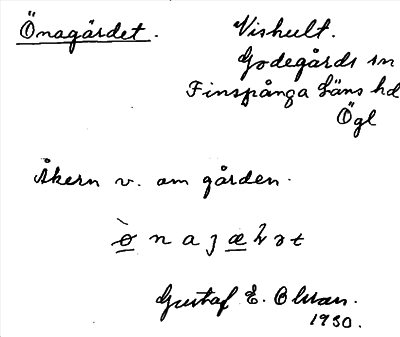 Önagärdet.
Vishult.
Godegårds sn
Finspånga Läns hd
Ögl
Åkern v. om gården.
Gustaf E. Olsson.
1930.